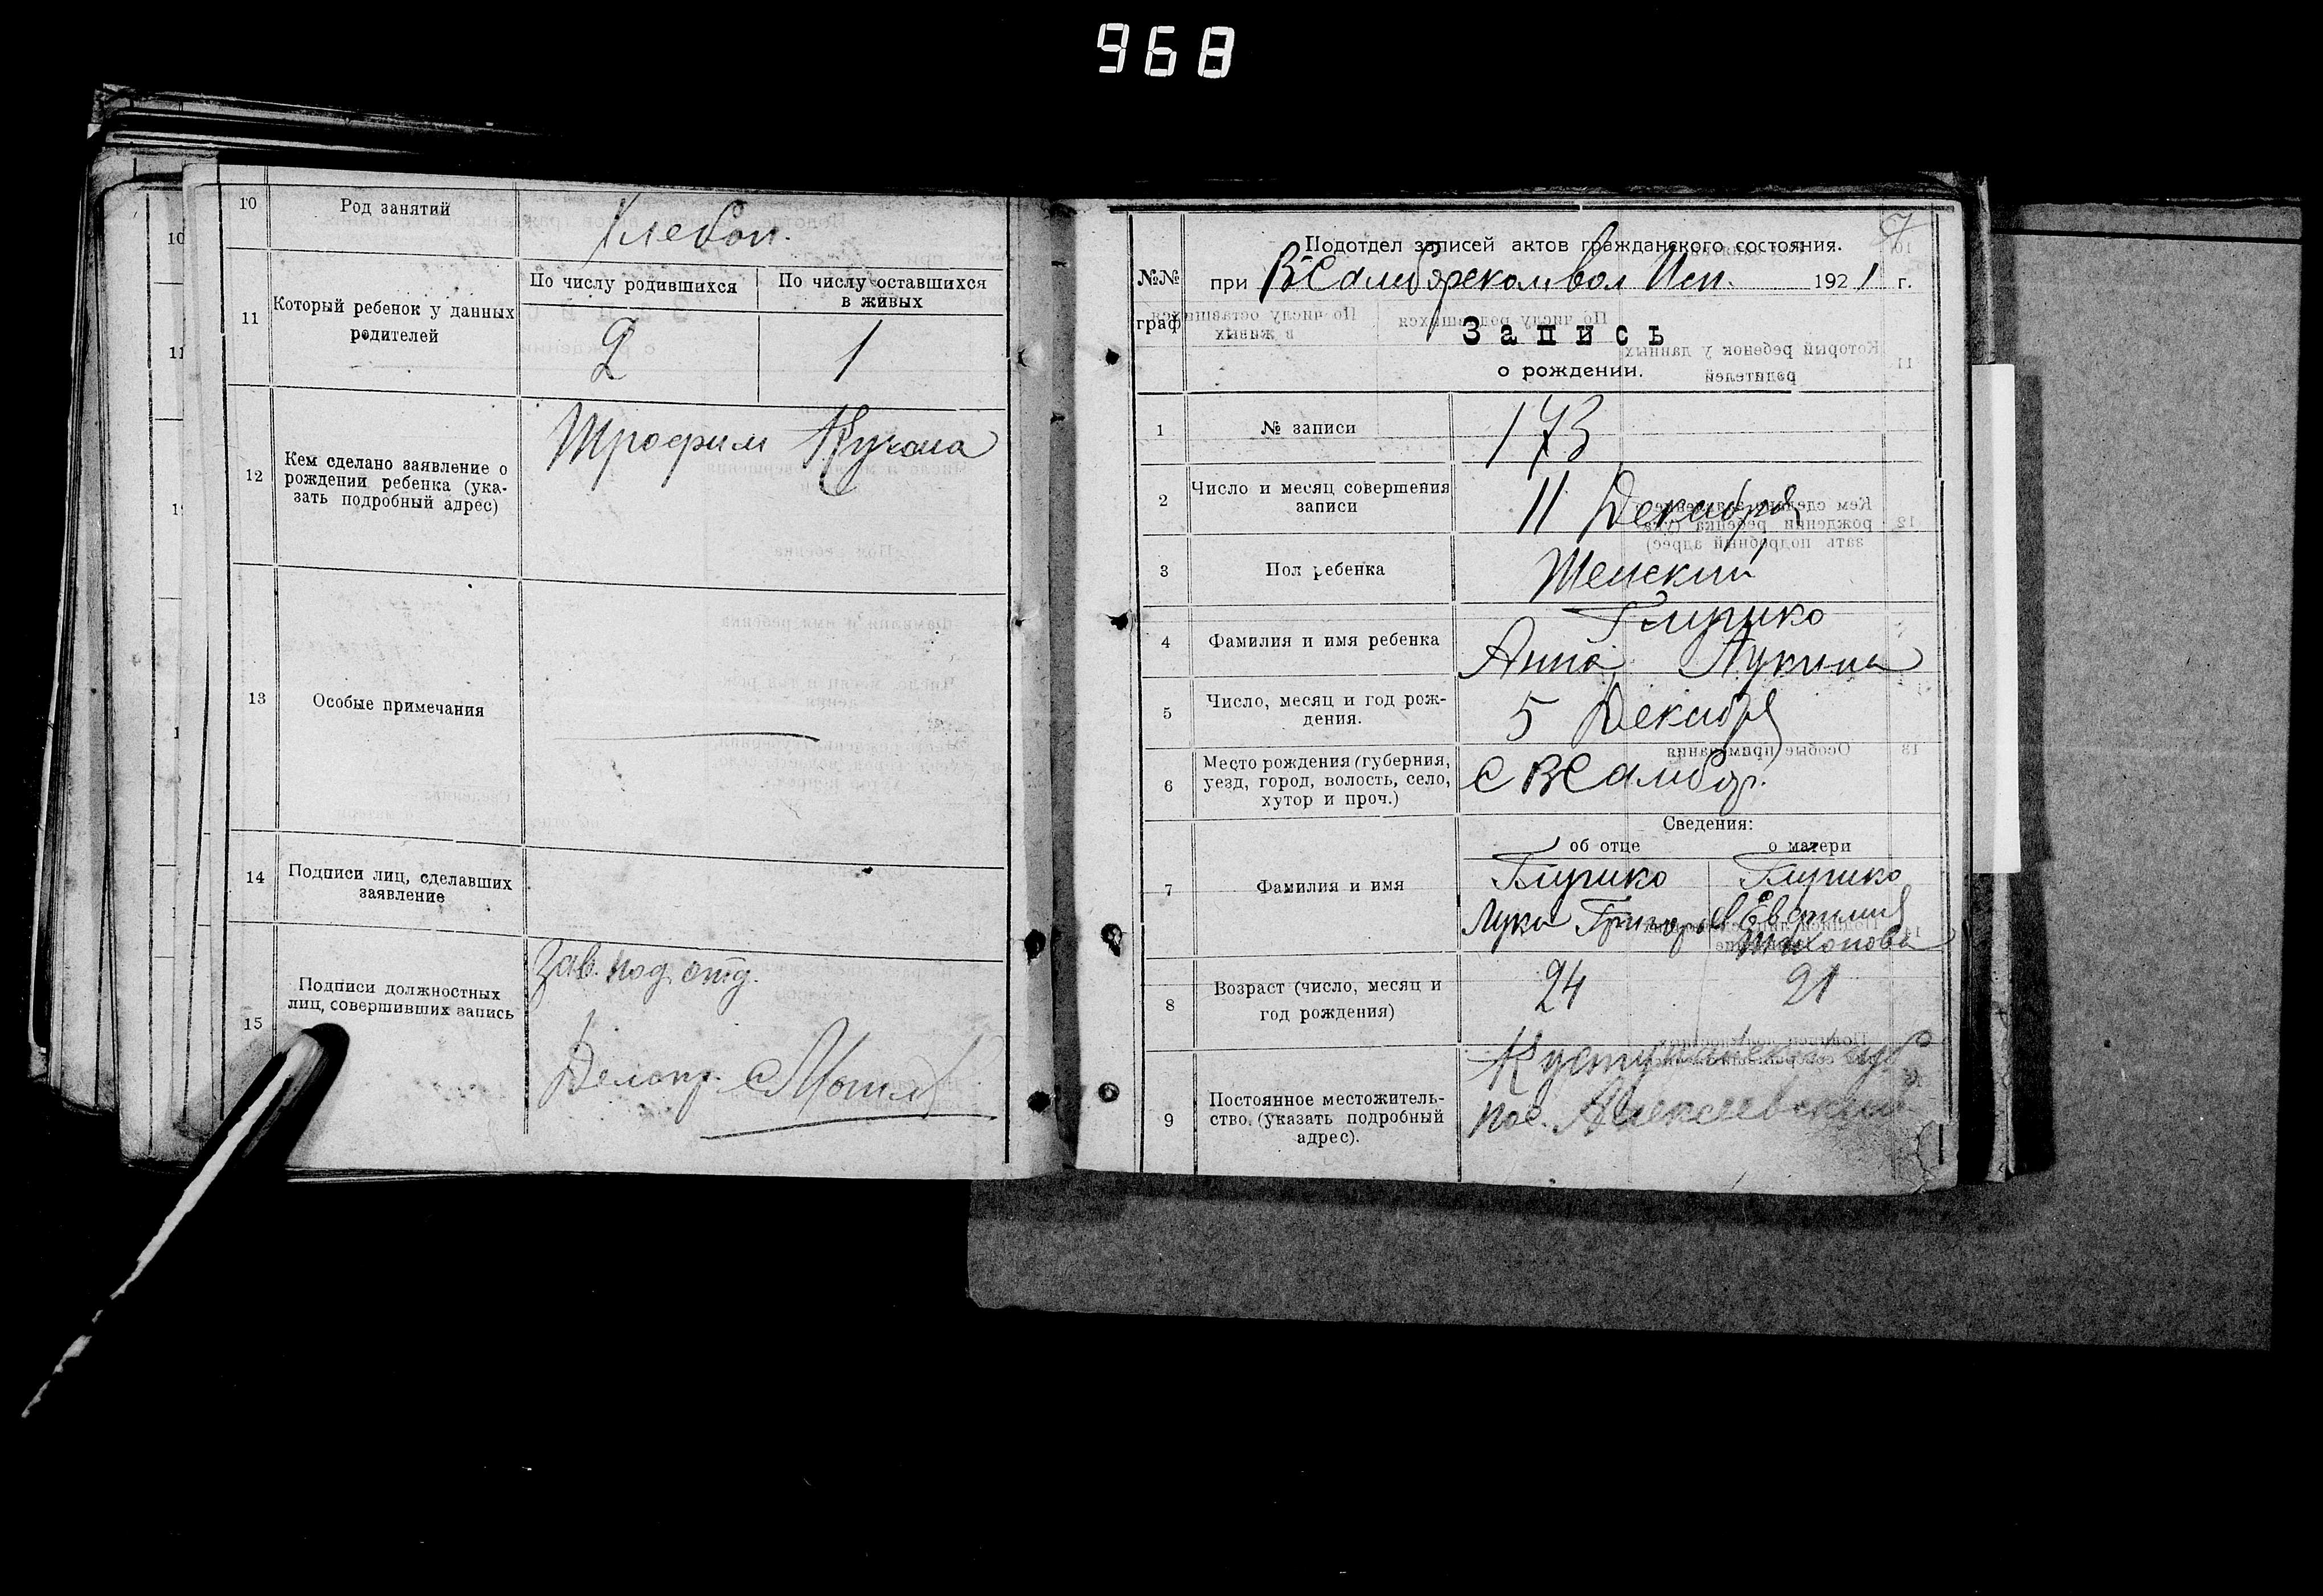 968
10
Род занятий
Хлебоп.
11
Который ребенок у данных
родителей
По числу родившихся
По числу оставшихся
в живых
2
1
12
Кем сделано заявление о
рождении ребенка (ука-
зать подробный адрес)
Трофим
13
Особые примечания
14
Подписи лиц, сделавших
заявление
15
Подписи должностных
лиц, совершивших запись
Зав. под. отд.
Делопр.
№№
граф
Подотдел записей актов гражданского состояния.
при 1921 г.
Запись
о рождении.
1
№ записи
173
2
Число и месяц совершения
записи
11 Декабря
3
Пол ребенка
Женский
4
Фамилия и имя ребенка
Глушко
Анна Лукина
5
Число, месяц и год рож-
дения.
5 Декабря
6
Место рождения (губерния,
уезд, город, волость, село,
хутор и проч.)
Сведения:
об отце
о матери
7
Фамилия и имя
Глушко
Лука Григорьев
Глушко
Евфимия
Тихонова
8
Возраст (число, месяц и
год рождения)
24
21
9
Постоянное местожитель-
ство. (указать подробный
адрес).
Кустанайский у
пос. Алексеевский